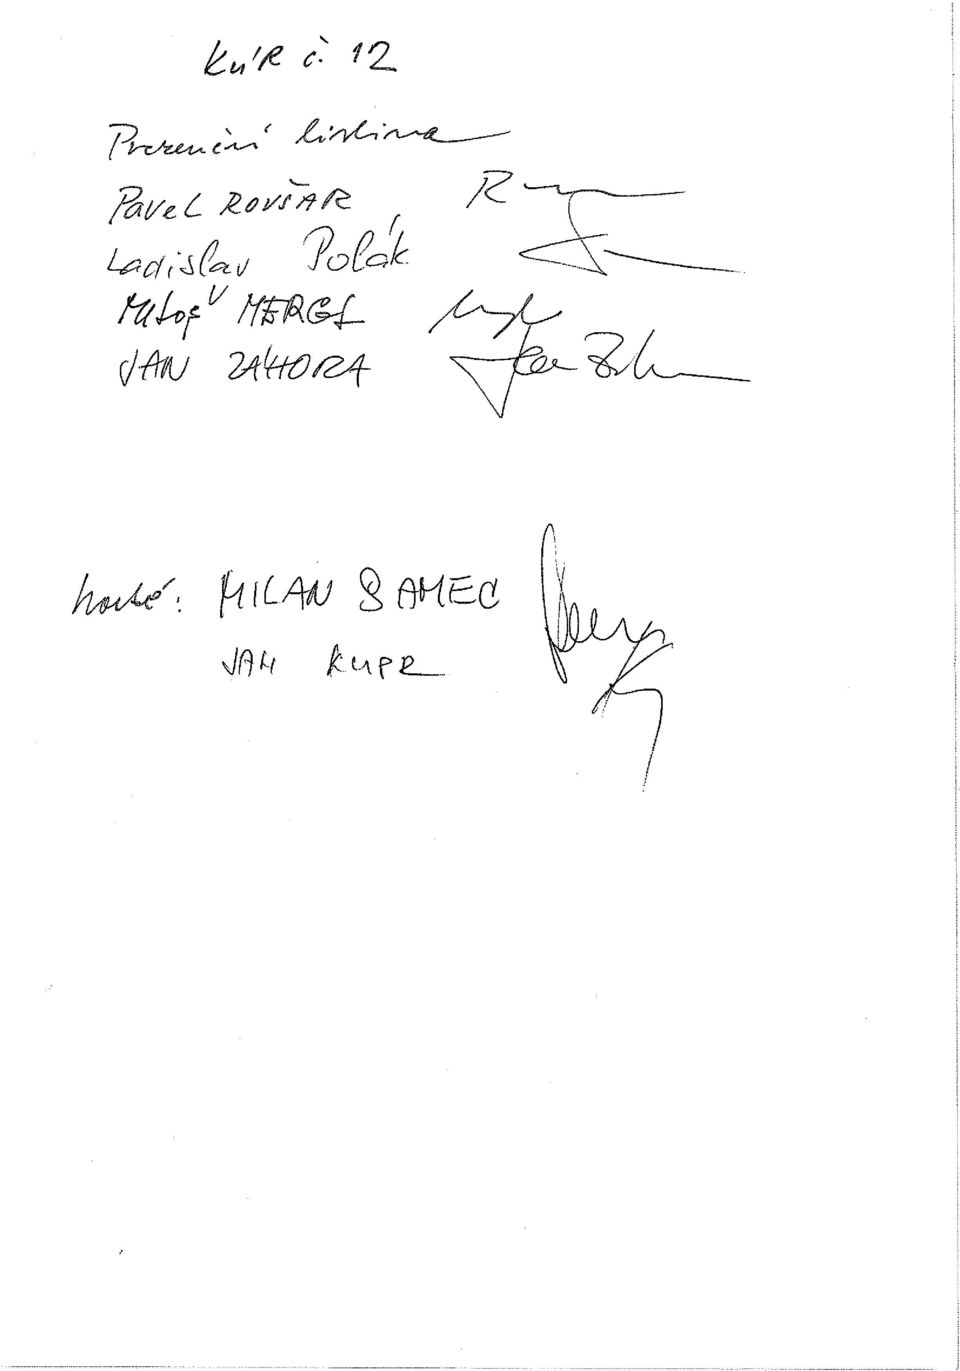 KÚR č. 12
Prezenční listina
Pavel ROVŠAR
Ladislav Polák
Miloš MERGL
JAN ZÁHORA
hosté: MILAN SAMEC
JAN KUPR